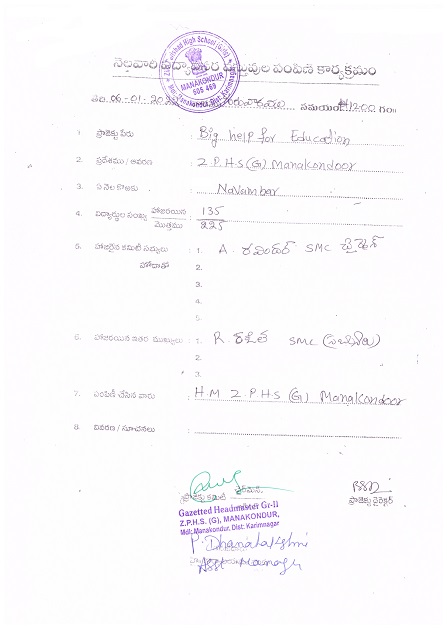 Zilla Parishad High School (Girls)
MANAKONDUR
505 469
Mdl: Manakondur, Dist: Karimnagar
నెలవారి విద్యావసర వస్తువుల పంపిణి కార్యక్రమం
తేది. 06-01-20 గురువారము సమయం 12:00 గం॥
1. ప్రాజెక్టు పేరు : Big help for Education
2. ప్రదేశము / ఆవరణ : Z.P.H.S (G) Manakondoor
3. ఏ నెల కొరకు : Navambar
4. విద్యార్థుల సంఖ్య హాజరయిన / మొత్తము : 135 / 225
5. హాజరైన కమిటీ సభ్యులు : 1. A. రవిందర్ SMC చైర్మెన్
హోదాతో 2.
3.
4.
5.
6. హాజరయిన ఇతర ముఖ్యులు : 1. R. SMC
2.
3.
7. పంపిణి చేసిన వారు : H.M Z.P.H.S (G) Manakondoor
8. వివరణ / సూచనలు :
ప్రాజెక్టు కమిటీ చైర్మన్
ప్రాజెక్టు డైరెక్టర్
Gazetted Headmaster Gr-II
Z.P.H.S. (G), MANAKONDUR,
Mdl: Manakondur, Dist: Karimnagar
P. Dhanalakshmi
Asst Manager